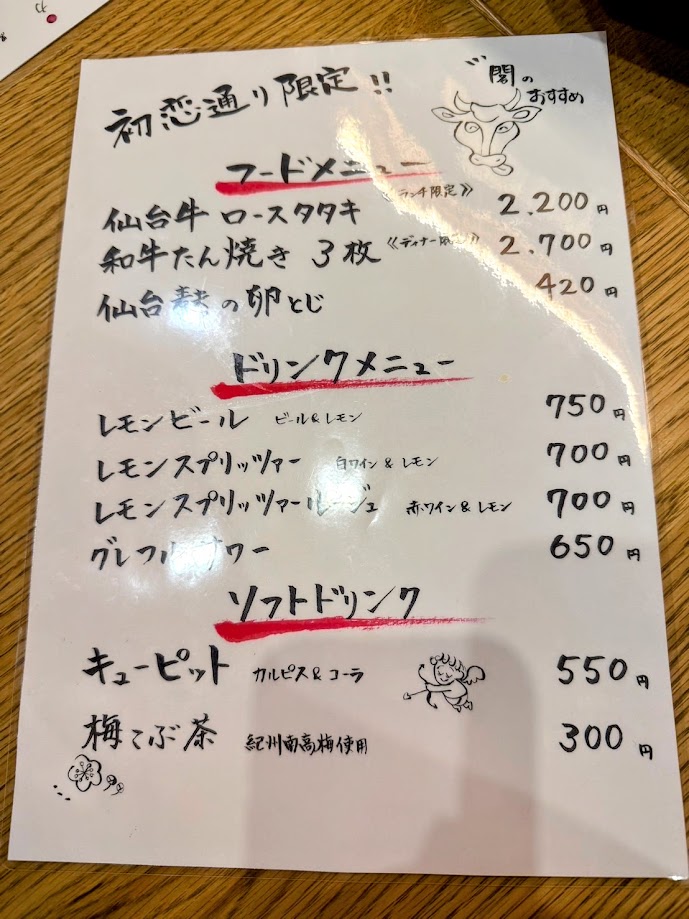 初恋通り限定!!
閣の
おすすめ
フードメニュー
仙台牛 ロースタタキ 《ランチ限定》 2.200円
和牛たん焼き 3枚 《ディナー限定》 2.700円
仙台麩の卵とじ 420円
ドリンクメニュー
レモンビール ビール&レモン 750円
レモンスプリッツァー 白ワイン&レモン 700円
レモンスプリッツァールージュ 赤ワイン&レモン 700円
グレフルサワー 650円
ソフトドリンク
キューピット カルピス&コーラ 550円
梅こぶ茶 紀州南高梅使用 300円